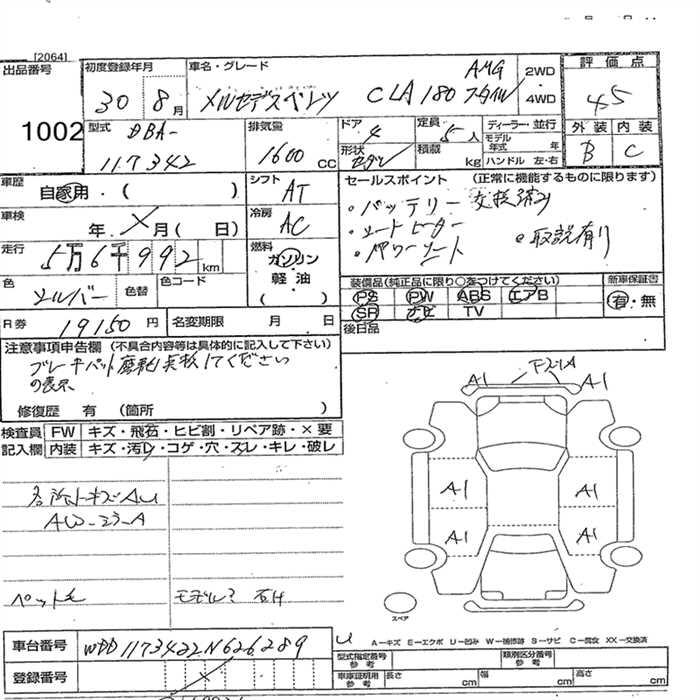 [2064]
出品番号 初度登録年月 車名・グレード 評価点
1002
30 8月 メルセデスベンツ CLA180 AMG スタイル 2WD ・ 4WD 4.5
型式 DBA- 117342
排気量 1600 CC
ドア 4
形状 セダン
定員 5人
積載 kg
ディーラー・並行
モデル年式 年
ハンドル 左・右
外装 内装
B C
車歴 自家用・( )
シフト AT
車検 年 X月( 日)
冷房 AC
走行 5万6千992km
燃料 ガソリン 軽・油 ( )
色 シルバー 色替 色コード
R券 19150円 名変期限 月 日
セールスポイント (正常に機能するものに限ります)
・バッテリー 交換済み
・シートヒーター
・パワーシート ・取説有り
装備品(純正品に限り○をつけてください) 新車保証書
PS PW ABS エアB
SR ナビ TV
有・無
後日品
注意事項申告欄 (不具合内容等は具体的に記入して下さい)
ブレーキパット磨耗 してください
の表示
修復歴 有 (箇所 )
検査員 FW キズ・飛石・ヒビ割・リペア跡・×要
記入欄 内装 キズ・汚レ・コゲ・穴・スレ・キレ・破レ
各所小キズAU
AW-ミラ-A
ペット毛
A1 A1
A1 A1
A1 A1
スペア
車台番号 WDD1173422N626289
登録番号
A−キズ E−エクボ U−凹み W−補修跡 S−サビ C−腐食 XX−交換済
型式指定番号 参考 類別区分番号 参考
車庫証明用 参考 長さ cm 幅 cm 高さ cm